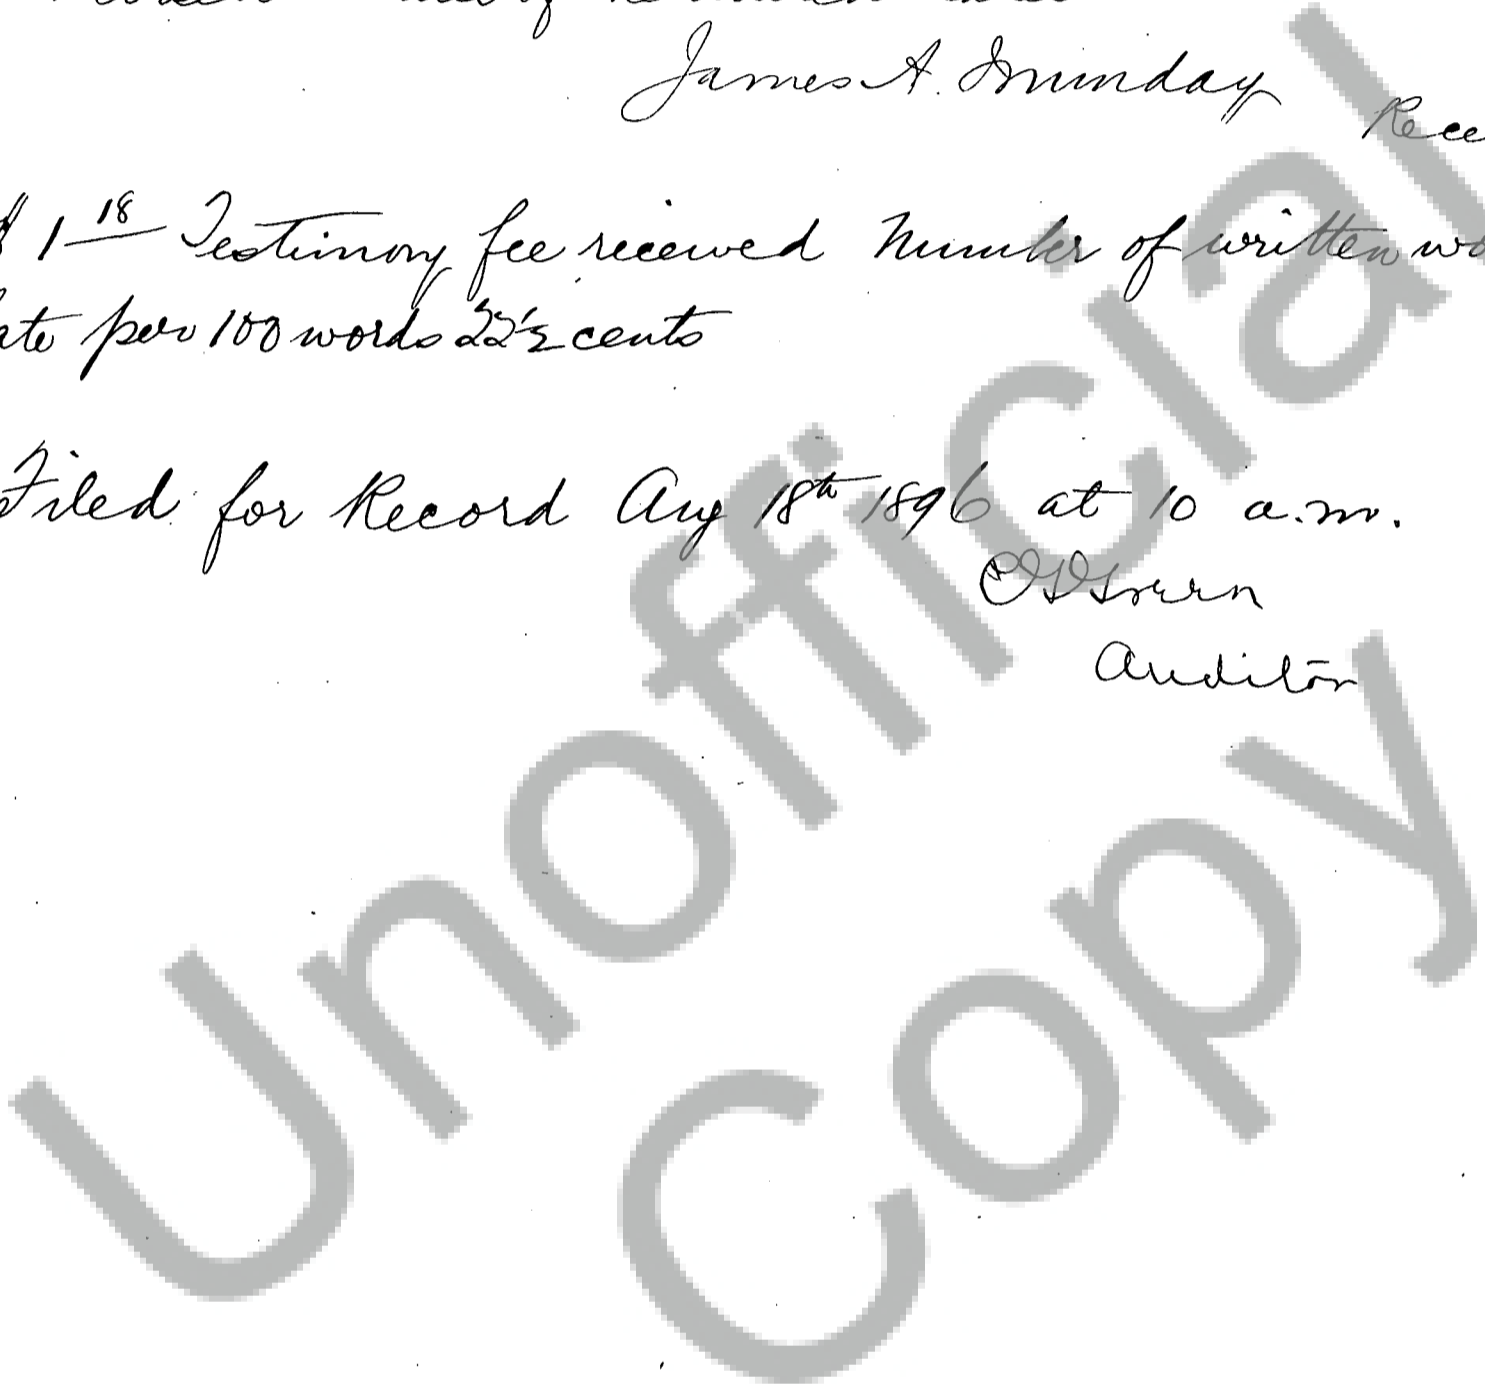 James A. Munday Rece
$1 18 Testimony fee received Number of written wo
ate per 100 words 22½ cents
Filed for Record Aug 18th 1896 at 10 a.m.
Auditor
Unofficial
Copy